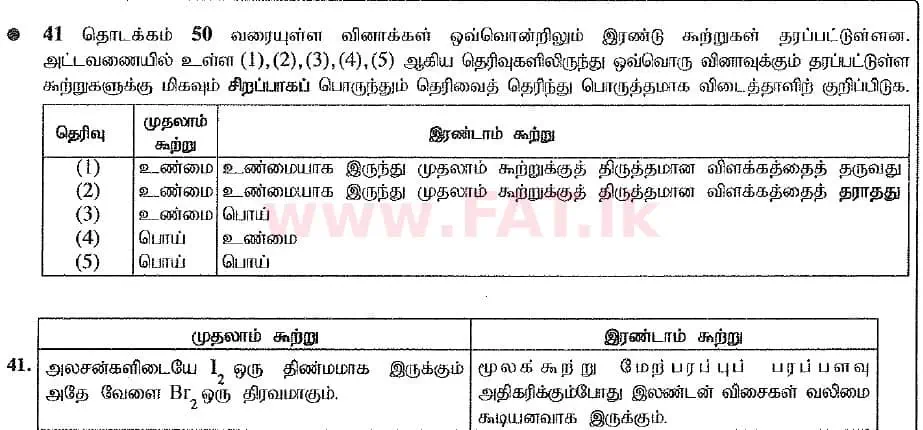 ● 41 தொடக்கம் 50 வரையுள்ள வினாக்கள் ஒவ்வொன்றிலும் இரண்டு கூற்றுகள் தரப்பட்டுள்ளன.
அட்டவணையில் உள்ள (1), (2), (3), (4), (5) ஆகிய தெரிவுகளிலிருந்து ஒவ்வொரு வினாவுக்கும் தரப்பட்டுள்ள
கூற்றுகளுக்கு மிகவும் சிறப்பாகப் பொருந்தும் தெரிவைத் தெரிந்து பொருத்தமாக விடைத்தாளிற் குறிப்பிடுக.
தெரிவு முதலாம் கூற்று இரண்டாம் கூற்று
(1) உண்மை உண்மையாக இருந்து முதலாம் கூற்றுக்குத் திருத்தமான விளக்கத்தைத் தருவது
(2) உண்மை உண்மையாக இருந்து முதலாம் கூற்றுக்குத் திருத்தமான விளக்கத்தைத் தராதது
(3) உண்மை பொய்
(4) பொய் உண்மை
(5) பொய் பொய்
www.FAT.lk
முதலாம் கூற்று இரண்டாம் கூற்று
41. அலசன்களிடையே I2 ஒரு திண்மமாக இருக்கும்
அதே வேளை Br2 ஒரு திரவமாகும்.
மூலக்கூற்று மேற்பரப்புப் பரப்பளவு
அதிகரிக்கும்போது இலண்டன் விசைகள் வலிமை
கூடியனவாக இருக்கும்.